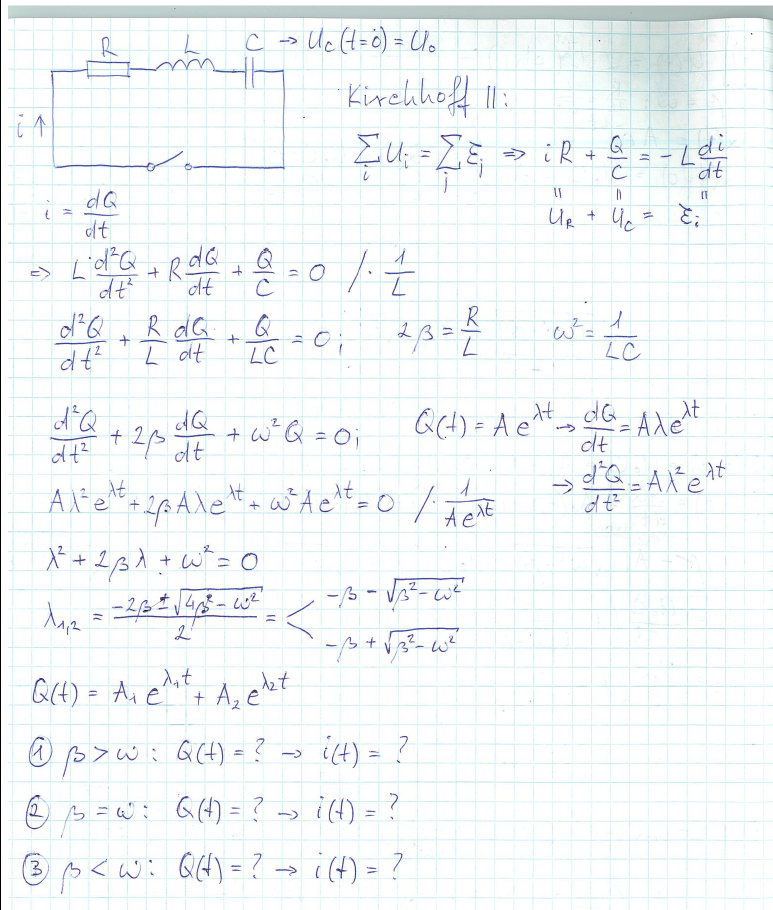 R L C → U_C(t=0) = U_0
i ↑
Kirchhoff II:
∑_i U_i = ∑_j Ɛ_j ⇒ iR + Q/C = -L di/dt
" " "
U_R + U_C = Ɛ_i
i = dQ/dt
⇒ L·d²Q/dt² + R dQ/dt + Q/C = 0 /· 1/L
d²Q/dt² + R/L dQ/dt + Q/LC = 0; 2β = R/L ω² = 1/LC
d²Q/dt² + 2β dQ/dt + ω²Q = 0; Q(t) = A e^{λt} → dQ/dt = Aλe^{λt}
→ d²Q/dt² = Aλ²e^{λt}
Aλ²e^{λt} + 2βAλe^{λt} + ω²Ae^{λt} = 0 /· 1/Ae^{λt}
λ² + 2βλ + ω² = 0
λ_{1,2} = (-2β ± √(4β² - ω²))/2 = < -β - √(β² - ω²)
-β + √(β² - ω²)
Q(t) = A_1 e^{λ_1 t} + A_2 e^{λ_2 t}
① β > ω : Q(t) = ? → i(t) = ?
② β = ω : Q(t) = ? → i(t) = ?
③ β < ω : Q(t) = ? → i(t) = ?